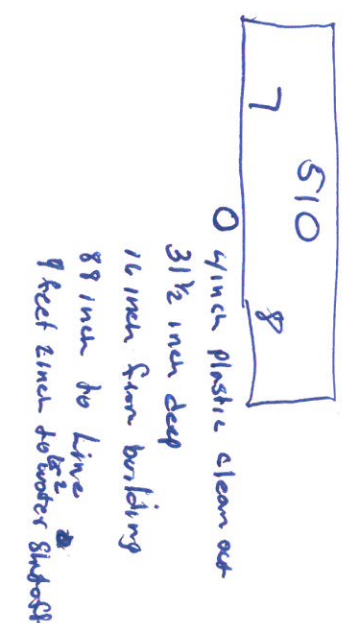 510
7 8
O 4inch plastic clean out
31½ inch deep
16 inch from building
88 inch to Line
9 feet 2inch to water Shutoff